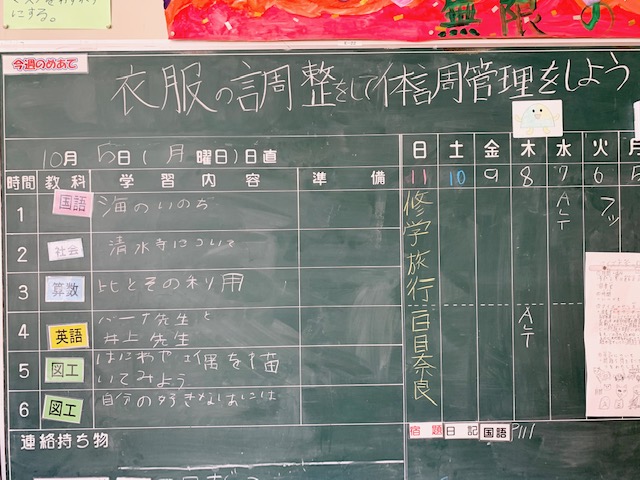 にする。
無限の
今週のめあて
衣服の調整をして体調管理をしよう
10月 5日(月 曜日)日直
時間 教科 学習内容 準備
1 国語 海のいのち
2 社会 清水寺について
3 算数 比とその利用
4 英語 バーナ先生と
井上先生
5 図工 はにわや土偶を描
いてみよう
6 図工 自分の好きなはには
連絡持ち物
日 土 金 木 水 火 月
11 10 9 8 7 6 5
修学旅行
一日目奈良
ALT
ALT
宿題 日記 国語 P111